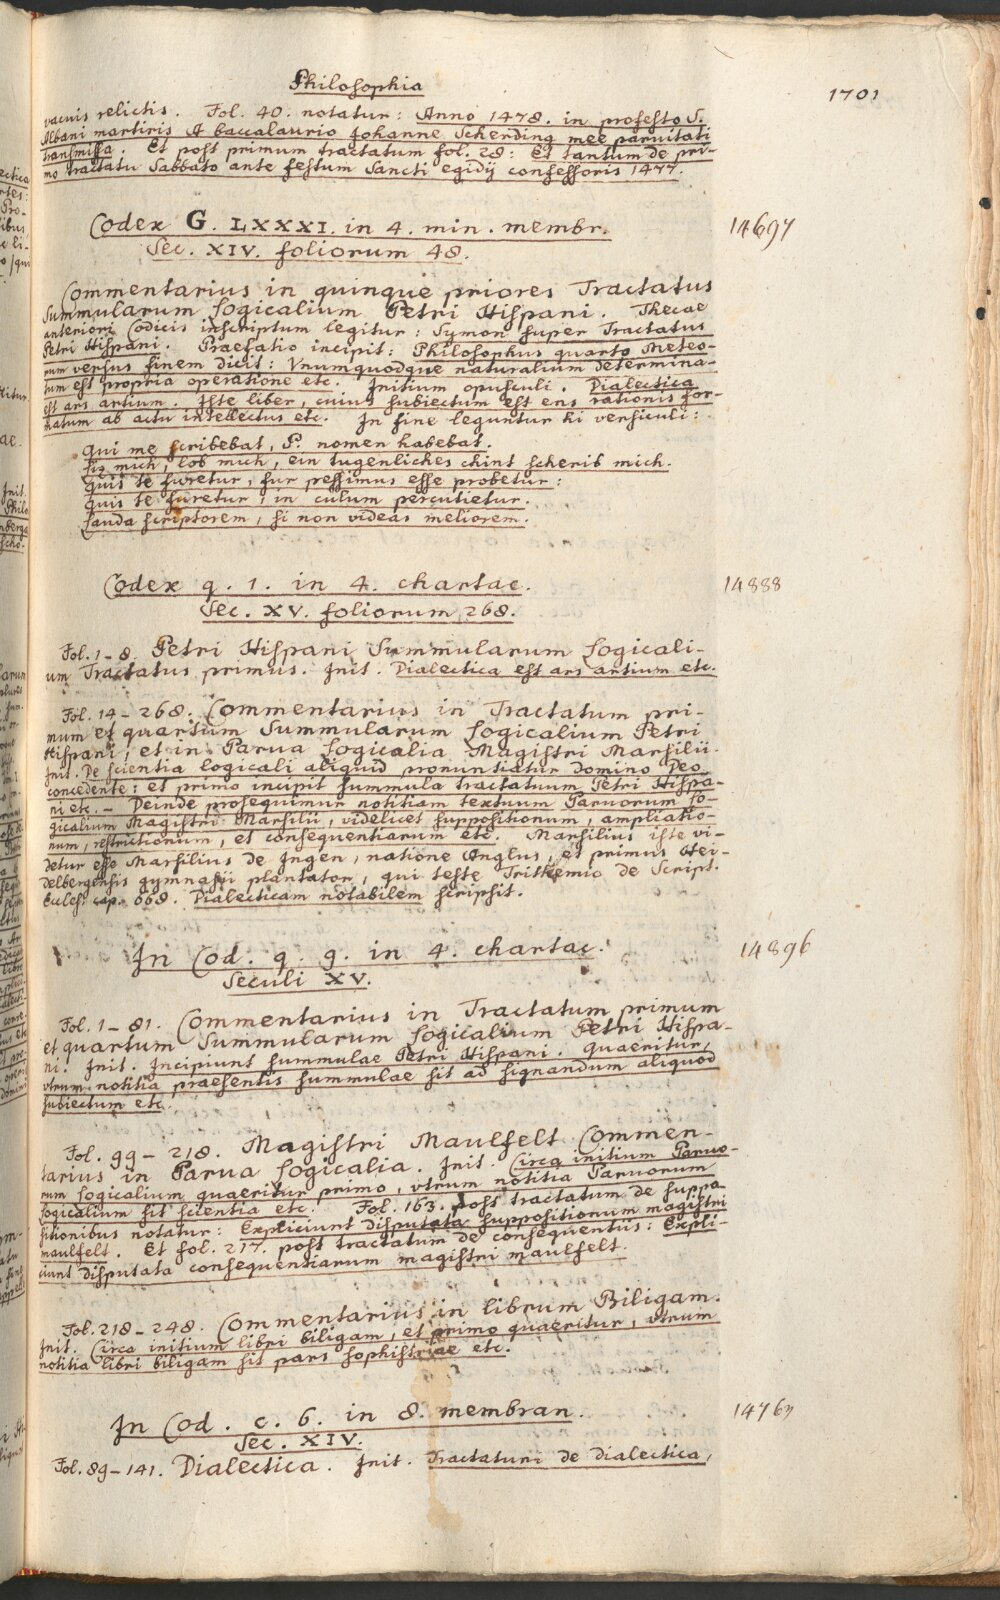 Philosophia
1701
vacuis relictis. Fol. 40. notatur: Anno 1478. in profesto S.
Albani martiris A baccalaurio Johanne Scherding mee paruitati
transmissa. Et post primum tractatum fol. 28: Et tantum de pri-
mo tractatu Sabbato ante festum Sancti egidij confessoris 1477.
Codex G. LXXXI. in 4. min. membr.
14697
Sec. XIV. foliorum 48.
Commentarius in quinque priores Tractatus
Summularum Logicalium Petri Hispani. Thecae
anteriori Codicis inscriptum legitur: Symon super Tractatus
Petri Hispani. Praefatio incipit: Philosophus quarto Meteo-
rum versus finem dicit: Vnumquodque naturalium determina-
tum est propria operatione etc. Initium opusculi. Dialectica
est ars artium. Iste liber, cuius subiectum est ens rationis for-
matum ab actu intellectus etc. In fine leguntur hi versiculi:
Qui me scribebat, P. nomen habebat.
lis mich, lob mich, ein tugenliches chint scherib mich.
Quis te furetur, fur pessimus esse probetur:
Quis te furetur, in culum percutietur.
Lauda scriptorem, si non videas meliorem.
Codex q. 1. in 4. chartac.
14888
Sec. XV. foliorum 268.
Fol. 1-8. Petri Hispani Summularum Logicali-
um Tractatus primus. Init. Dialectica est ars artium etc.
Fol. 14-268. Commentarius in Tractatum pri-
mum et quartum Summularum Logicalium Petri
Hispani, et in Parua Logicalia Magistri Marsilii.
Init. De scientia logicali aliquid pronuntiatur domino Deo
concedente: et primo incipit summula tractatuum Petri Hispa-
ni etc. - Deinde prosequimur notitiam textuum Paruorum Lo-
gicalium Magistri Marsilii, videlicet suppositionum, ampliatio-
num, restrictionum, et consequentiarum etc. Marsilius iste vi-
detur esse Marsilius de Ingen, natione Anglus, et primus Hei-
delbergensis gymnasii plantator, qui teste Trithemio de Script.
Eccles. cap. 668. Dialecticam notabilem scripsit.
In Cod. q. 9. in 4. chartac.
14896
Seculi XV.
Fol. 1-81. Commentarius in Tractatum primum
et quartum Summularum Logicalium Petri Hispa-
ni. Init. Incipiunt summulae Petri Hispani. Quaeritur,
vtrum notitia praesentis summulae sit ad signandum aliquod
subiectum etc.
Fol. 99-218. Magistri Maulfelt Commen-
tarius in Parua Logicalia. Init. Circa initium Paruo-
rum Logicalium quaeritur primo, vtrum notitia Paruorum
Logicalium sit scientia etc. Fol. 163. post tractatum de suppo
sitionibus notatur: Expliciunt disputata suppositionum magistri
maulfelt. Et fol. 217. post tractatum de consequentiis: Expli-
ciunt disputata consequentiarum magistri maulfelt.
Fol. 218-248. Commentarius in librum Biligam.
Init. Circa initium libri biligam, et primo quaeritur, vtrum
notitia libri biligam sit pars sophistriae etc.
In Cod. c. 6. in 8. membran.
Sec. XIV.
Fol. 89-141. Dialectica. Init. Tractaturi de Dialectica,